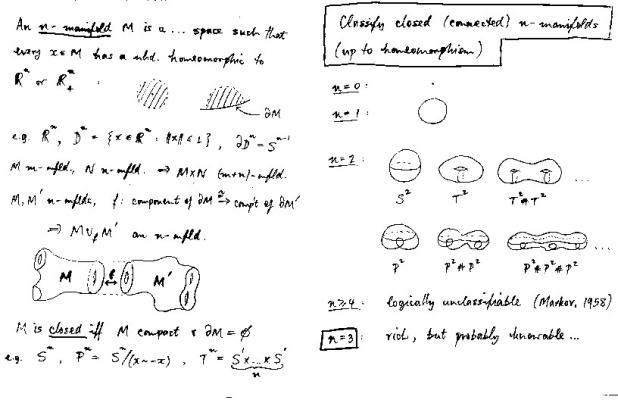 An n-manifold M is a ... space such that
every x ∈ M has a nbd. homeomorphic to
Rⁿ or Rⁿ₊ :
∂M
e.g. Rⁿ, Dⁿ = {x ∈ Rⁿ : ‖x‖ ≤ 1}, ∂Dⁿ = Sⁿ⁻¹
M m-mfld., N n-mfld. ⇒ M×N (m+n)-mfld.
M, M' n-mflds, f: component of ∂M ≅→ comp't of ∂M'
⇒ M ∪f M' an n-mfld.
M f M'
M is closed iff M compact & ∂M = ∅
e.g. Sⁿ, Pⁿ = Sⁿ/(x~-x), Tⁿ = S¹x...xS¹
n
Classify closed (connected) n-manifolds
(up to homeomorphism)
n=0:
n=1:
n=2:
S² T² T²#T² ...
P² P²#P² P²#P²#P² ...
n≥4: logically unclassifiable (Markov, 1958)
n=3: rich, but probably knowable...